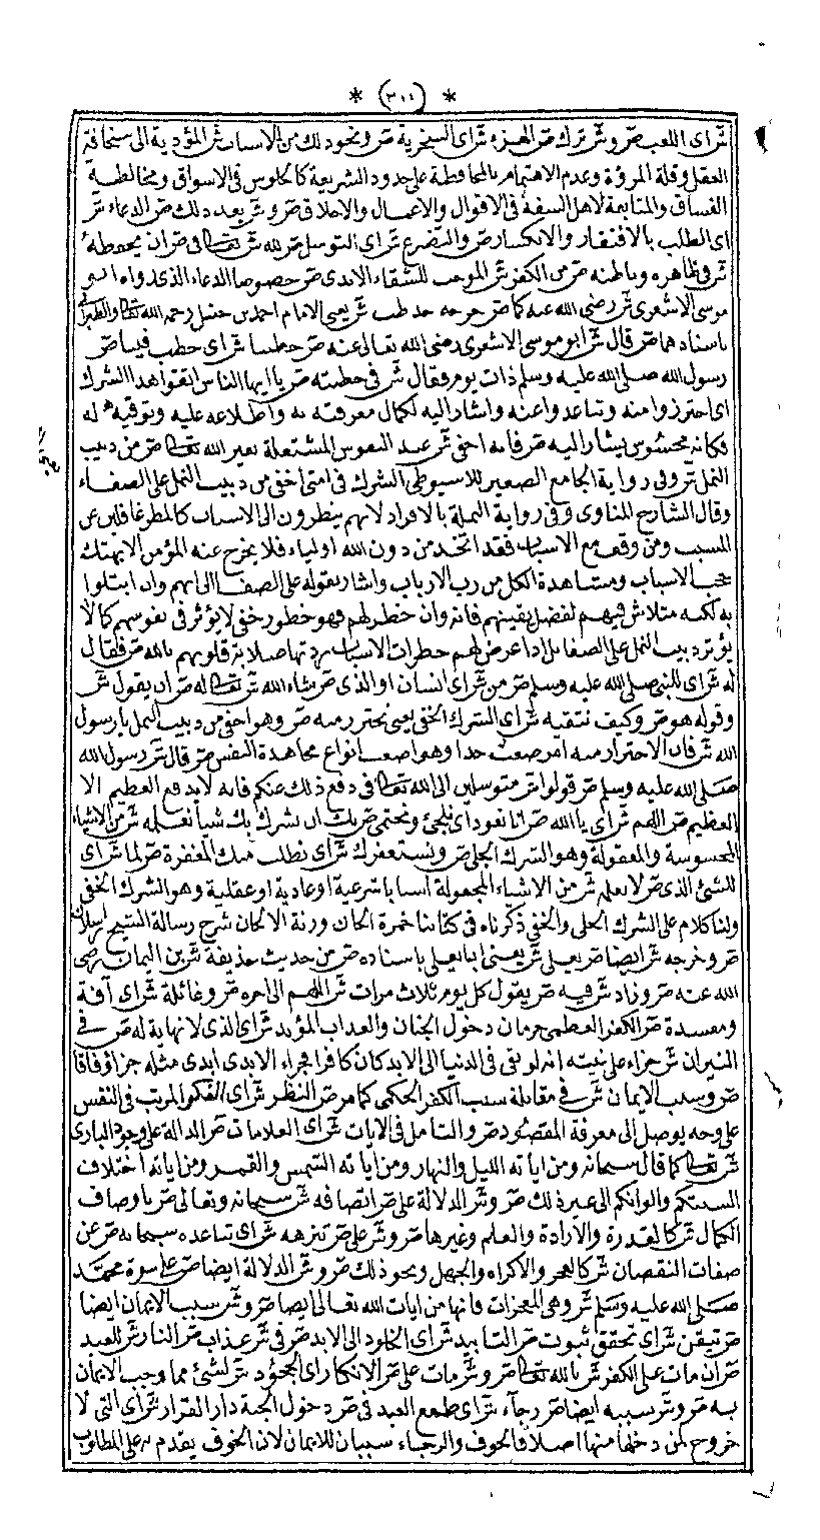 * (٣١٤) *
ش اى اللعب ص و ش ترك ص الهزء ش اى السخرية ص ونحو ذلك من الاسباب ش المؤدية الى سخافة
العقل وقلة المروة وعدم الاهتمام بالمحافظة على حدود الشريعة كالجلوس فى الاسواق ومخالطة
الفساق والمتابعة لاهل السفه فى الاقوال والاعمال والاخلاق ص و ش بعد ذلك ص الدعاء ش
اى الطلب بالافتقار والانكسار ص والتضرع ش اى التوسل ص لله ش تعالى فى ص ان يحفظه
ش فى ظاهره وباطنه ص من الكفر ش الموجب للشقاء الابدى ص خصوصا الدعاء الذى رواه ابو
موسى الاشعرى ش رضى الله عنه كما ص خرجه حد طب ش يعنى الامام احمد بن حنبل رحمه الله تعالى والطبرانى
باسنادهما ص قال ش ابو موسى الاشعرى رضى الله تعالى عنه ص خطبنا ش اى خطب فينا ص
رسول الله صلى الله عليه وسلم ذات يوم فقال ش فى خطبته ص يا ايها الناس اتقوا هذا الشرك
اى احترزوا منه وتباعدوا عنه واشار اليه لكمال معرفته به واطلاعه عليه وتوقيه له
فكانه محسوس يشار اليه ص فانه اخفى ش عند النفوس المشتعلة بغير الله تعالى ص من دبيب
النمل ش وفى رواية الجامع الصغير للاسيوطى الشرك فى امتى اخفى من دبيب النمل على الصفاء
وقال الشارح المناوى وفى رواية النملة بالافراد لانهم ينظرون الى الاسباب كالمطر غافلين عن
المسبب ومن وقف مع الاسباب فقد اتخذ من دون الله اولياء فلا يخرج عنه المؤمن الا بهتك
حجب الاسباب ومشاهدة الكل من رب الارباب واشار بقوله على الصفا الى انهم وان ابتلوا
به لكنه متلاش فيهم لفضل يقينهم فانه وان خطر لهم فهو خطور خفى لا يؤثر فى نفوسهم كما لا
يؤثر دبيب النمل على الصفا بل اذا عرض لهم خطرات الاسباب ردتها صلابة قلوبهم بالله ص فقال
له ش اى للنبى صلى الله عليه وسلم ص من ش اى انسان او الذى ص شاء الله ش تعالى له ص ان يقول ش
وقوله هو ص وكيف نتقيه ش اى الشرك الخفى يعنى نحترز منه ص وهو اخفى من دبيب النمل يا رسول
الله ش فان الاحتراز منه امر صعب جدا وهو اصعب انواع مجاهدة النفس ص قال ش رسول الله
صلى الله عليه وسلم ص قولوا ش متوسلين الى الله تعالى فى دفع ذلك عنكم فانه لا يدفع العظيم الا
العظيم ص اللهم ش اى يا الله ص انا نعوذ اى نلتجئ ونحتمى ص بك ان نشرك بك شيأ نعلمه ش من الاشياء
المحسوسة والمعقولة وهو الشرك الجلى ص ونستغفرك ش اى نطلب منك المغفرة ص لما ش اى
للشئ الذى ص لا نعلمه ش من الاشياء المجعولة اسبابا شرعية او عادية او عقلية وهو الشرك الخفى
ولنا كلام على الشرك الجلى والخفى ذكرناه فى كتابنا خمرة الحان ورنة الالحان شرح رسالة الشيخ ارسلان
ص وخرجه ش ايضا ص يعلى ش يعنى ابا يعلى باسناده ص من حديث حذيفة ش بن اليمان رضى
الله عنه ص وزاد ش فيه ص يقول كل يوم ثلاث مرات ش اللهم الى اخره ص وغائلة ش اى آفة
ومفسدة ص الكفر العظمى حرمان دخول الجنان والعذاب المؤبد ش اى الذى لا نهاية له ص فى
النيران ش جزاء على نيته انه لو بقى فى الدنيا الى الابد كان كافرا فجزاء الابدى ابدى مثله جزاء وفاقا
ص وسبب الايمان ش فى مقابلة سبب الكفر الحكمى كما مر ص النظر ش اى الفكر المرتب فى النفس
على وجه يوصل الى معرفة المقصود ص والتامل فى الايات ش اى العلامات ص الدالة على وجود البارى
ش تعالى كما قال سبحانه ومن اياته الليل والنهار ومن اياته الشمس والقمر ومن اياته اختلاف
السنتكم والوانكم الى غير ذلك ص و ش الدلالة على ص اتصافه ش سبحانه وتعالى ص باوصاف
الكمال ش كالقدرة والارادة والعلم وغيرها ص و ش على ص تنزهه ش اى تباعده سبحانه ص عن
صفات النقصان ش كالعجز والاكراه والجهل ونحو ذلك ص و ش الدلالة ايضا ص على نبوة محمد
صلى الله عليه وسلم ش وهى المعجزات فانها من ايات الله تعالى ايضا ص و ش سبب الايمان ايضا
ص تيقن ش اى تحقق ثبوت ص التابيد ش اى الخلود الى الابد ص فى ش عذاب ص النار ش للعبد
ص ان مات على الكفر ش بالله تعالى ص و ش مات على ص الانكار اى الجحود ش لشئ مما وجب الايمان
به ص و ش سببه ايضا ص رجاء ش اى طمع العبد فى ص دخول الجنة دار القرار ش اى التى لا
خروج لمن دخلها منها اصلا فالخوف والرجاء سببان للايمان لان الخوف يقدم به على المطلوب